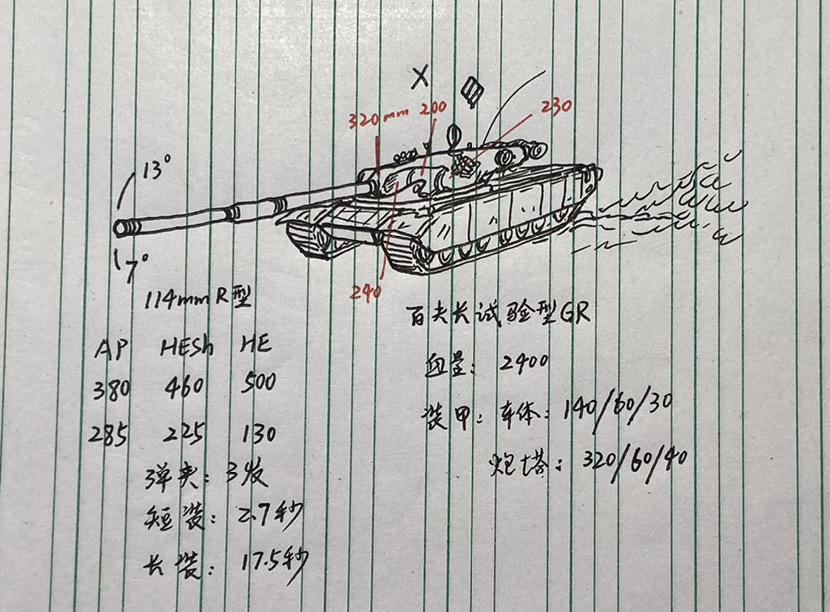 X
320mm 200 230
13°
7°
240
114mm R型
AP HESh HE
380 460 500
285 225 130
弹夹：3发
短装：2.7秒
长装：17.5秒
百夫长试验型GR
血量：2400
装甲：车体：140/60/30
炮塔：320/60/40